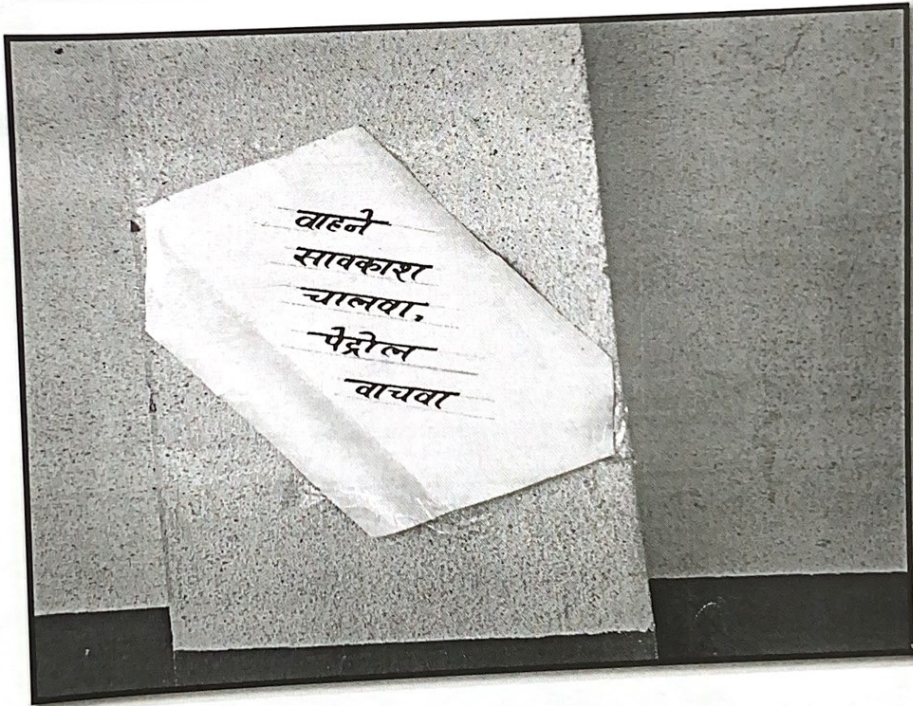 वाहने
सावकाश
चालवा.
पेट्रोल
वाचवा